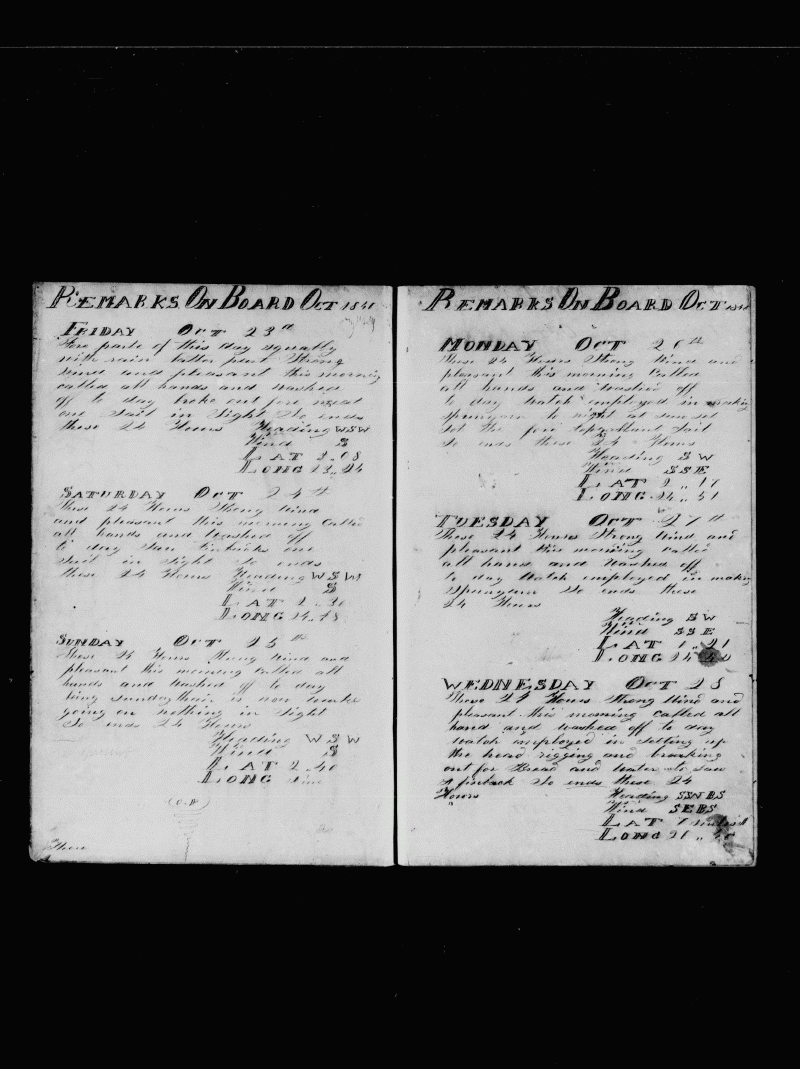 REMARKS ON BOARD OCT 1841
FRIDAY OCT 23rd
Fore parte of this day squally
with rain latter part Strong
wind and pleasant this morning
called all hands and washed
off to day broke out fore meat
one Sail in Sight So ends
these 24 Hours Heading WSW
Wind S
LAT 3..08
LONG 23..24
SATURDAY OCT 24th
These 24 Hours Strong Wind
and pleasant this morning Called
all hands and Washed off
to day Saw finbacks one
Sail in Sight So ends
these 24 Hours Heading WSW
Wind S
LAT 2..30
LONG 24..18
SUNDAY OCT 25th
These 24 Hours Strong Wind and
pleasant this morning Called all
hands and Washed off to day
being sunday their is now worke
going on nothing in Sight
So ends 24 Hours
Heading WSW
Wind S
LAT 2..40
LONG
These
REMARKS ON BOARD OCT 1841
MONDAY OCT 26th
These 24 Hours Strong Wind and
pleasant this morning Called
all hands and Washed off
to day Watch employed in making
spunyarn to night at sun set
Set the fore topmast Sail
So ends these 24 Hours
Heading SW
Wind SSE
LAT 2..17
LONG 24..51
TUESDAY OCT 27th
These 24 Hours Strong Wind and
pleasant this morning called
all hans and Washed off
to day Watch employed in making
Spunyarn So ends these
24 Hours
Heading SW
Wind SSE
LAT 1..21
LONG 24
WEDNESDAY OCT 28
These 24 Hours Strong Wind and
pleasant this morning called all
hand and washed off to day
Watch employed in Setting up
the head rigging and breaking
out for Bread and Water to Saw
a finback So ends these 24
Hours Heading SWBS
Wind SEBS
LAT
LONG 21..